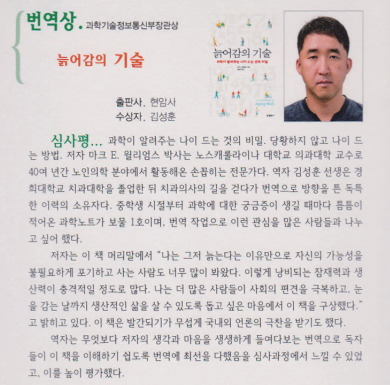 번역상. 과학기술정보통신부장관상
늙어감의 기술
늙어감의 기술
출판사. 현암사
수상자. 김성훈
심사평... 과학이 알려주는 나이 드는 것의 비밀. 당황하지 않고 나이 드
는 방법. 저자 마크 E. 윌리엄스 박사는 노스캐롤라이나 대학교 의과대학 교수로
40여 년간 노인의학 분야에서 활동해온 손꼽히는 전문가다. 역자 김성훈 선생은 경
희대학교 치과대학을 졸업한 뒤 치과의사의 길을 걷다가 번역으로 방향을 튼 독특
한 이력의 소유자다. 중학생 시절부터 과학에 대한 궁금증이 생길 때마다 틈틈이
적어온 과학노트가 보물 1호이며, 번역 작업으로 이런 관심을 많은 사람들과 나누
고 싶어 했다.
저자는 이 책 머리말에서 “나는 그저 늙는다는 이유만으로 자신의 가능성을
불필요하게 포기하고 사는 사람도 너무 많이 봐왔다. 이렇게 낭비되는 잠재력과 생
산력이 충격적일 정도로 많다. 나는 더 많은 사람들이 사회의 편견을 극복하고, 눈
을 감는 날까지 생산적인 삶을 살 수 있도록 돕고 싶은 마음에서 이 책을 구상했다.”
고 밝히고 있다. 이 책은 발간되기가 무섭게 국내외 언론의 극찬을 받기도 했다.
역자는 무엇보다 저자의 생각과 마음을 생생하게 들여다보는 번역으로 독자
들이 이 책을 이해하기 쉽도록 번역에 최선을 다했음을 심사과정에서 느낄 수 있었
고, 이를 높이 평가했다.